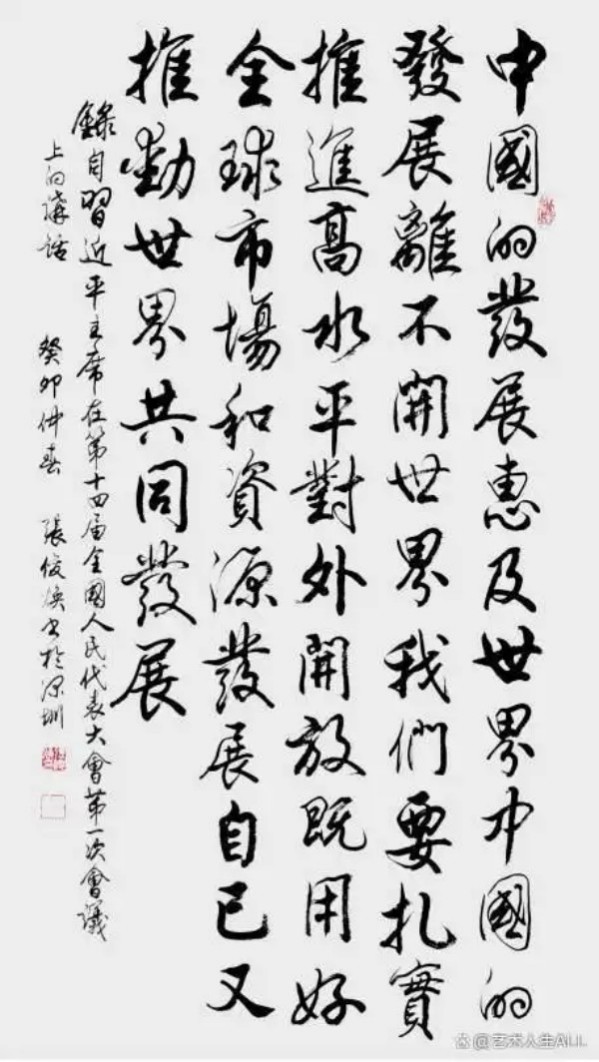 中國的發展惠及世界中國的
發展離不開世界我們要扎實
推進高水平對外開放既用好
全球市場和資源發展自己又
推動世界共同發展
錄自習近平主席在第十四屆全國人民代表大會第一次會議
上的講話 癸卯仲春 張俊煥書於深圳
@艺术人生ALL